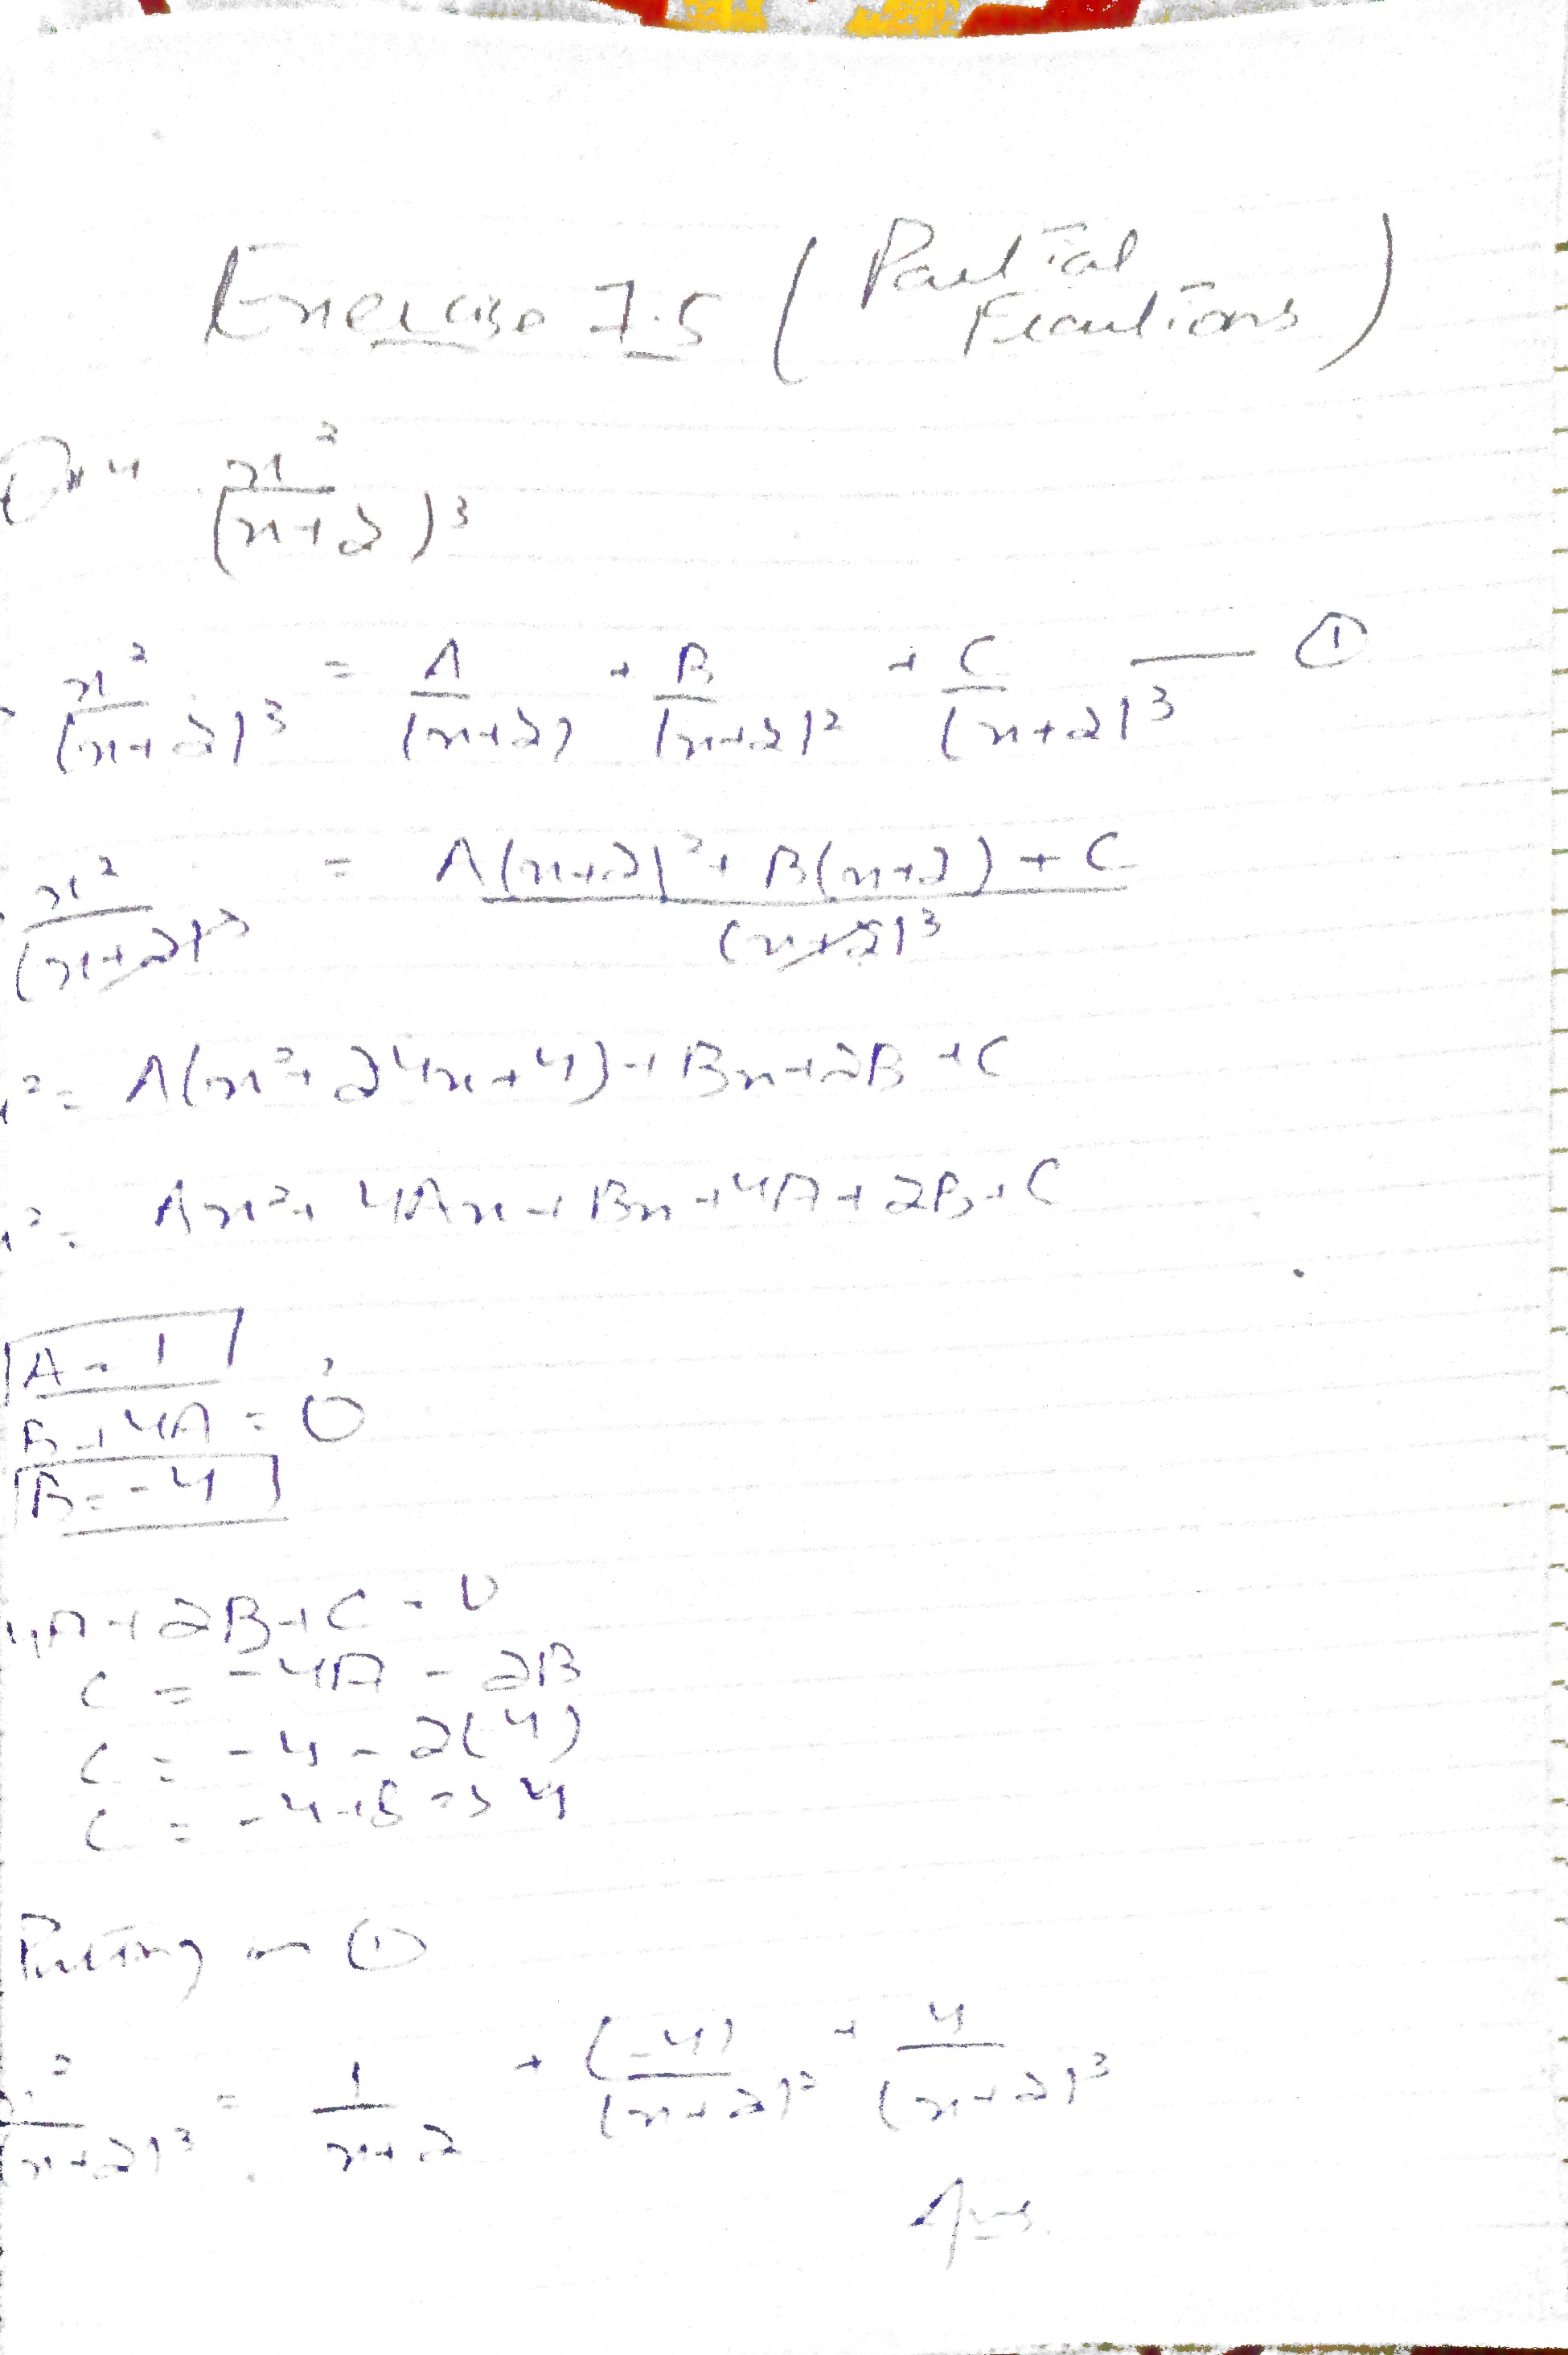 Exercise 7.5 (Partial Fractions)
Q#4 x²/(x+2)³
x²/(x+2)³ = A/(x+2) + B/(x+2)² + C/(x+2)³ — ①
x²/(x+2)³ = A(x+2)² + B(x+2) + C/(x+2)³
x² = A(x²+24x+4)+Bx+2B+C
x² = Ax²+4Ax+Bx+4A+2B+C
A = 1
B+4A = 0
B = -4
4A+2B+C = 0
C = -4A - 2B
C = -4 - 2(4)
C = -4+8 => 4
Putting in ①
x²/(x+2)³ = 1/x+2 + (-4)/(x+2)² + 4/(x+2)³
Ans.